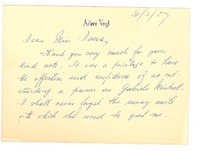 Aileen Vogl
16/3/57
Dear Miss Ames,
Thank you very much for your
kind note. It was a privilege to have
the affection and confidence of so out
standing a person as Gabriela Mistral.
I shall never forget the sunny smile
with which she used to greet me.